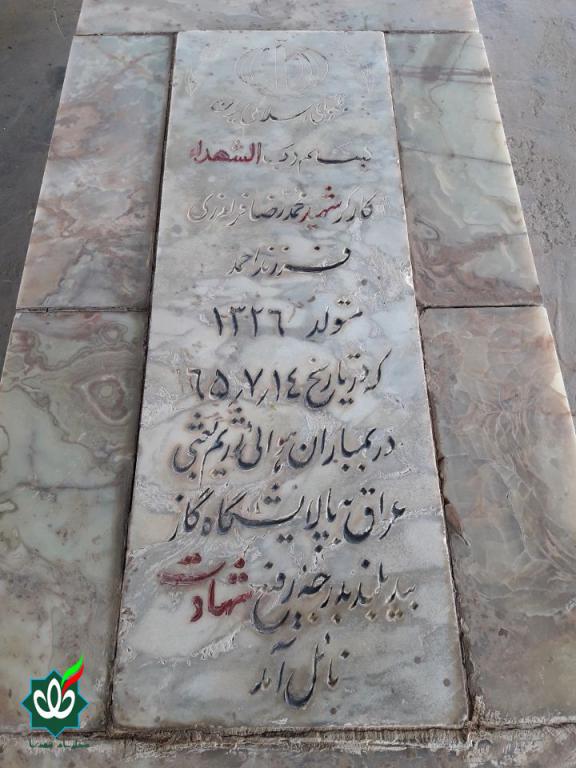 جمهوری اسلامی ایران
بسم رب الشهداء
کارگر شهید محمدرضا فرامرزی
فرزند احمد
متولد ۱۳۲۶
که در تاریخ ۶۵٫۷٫۱۴
در بمباران هوائی رژیم بعثی
عراق به پالایشگاه گاز
بید بلند بدرجه رفیع شهادت
نائل آمد